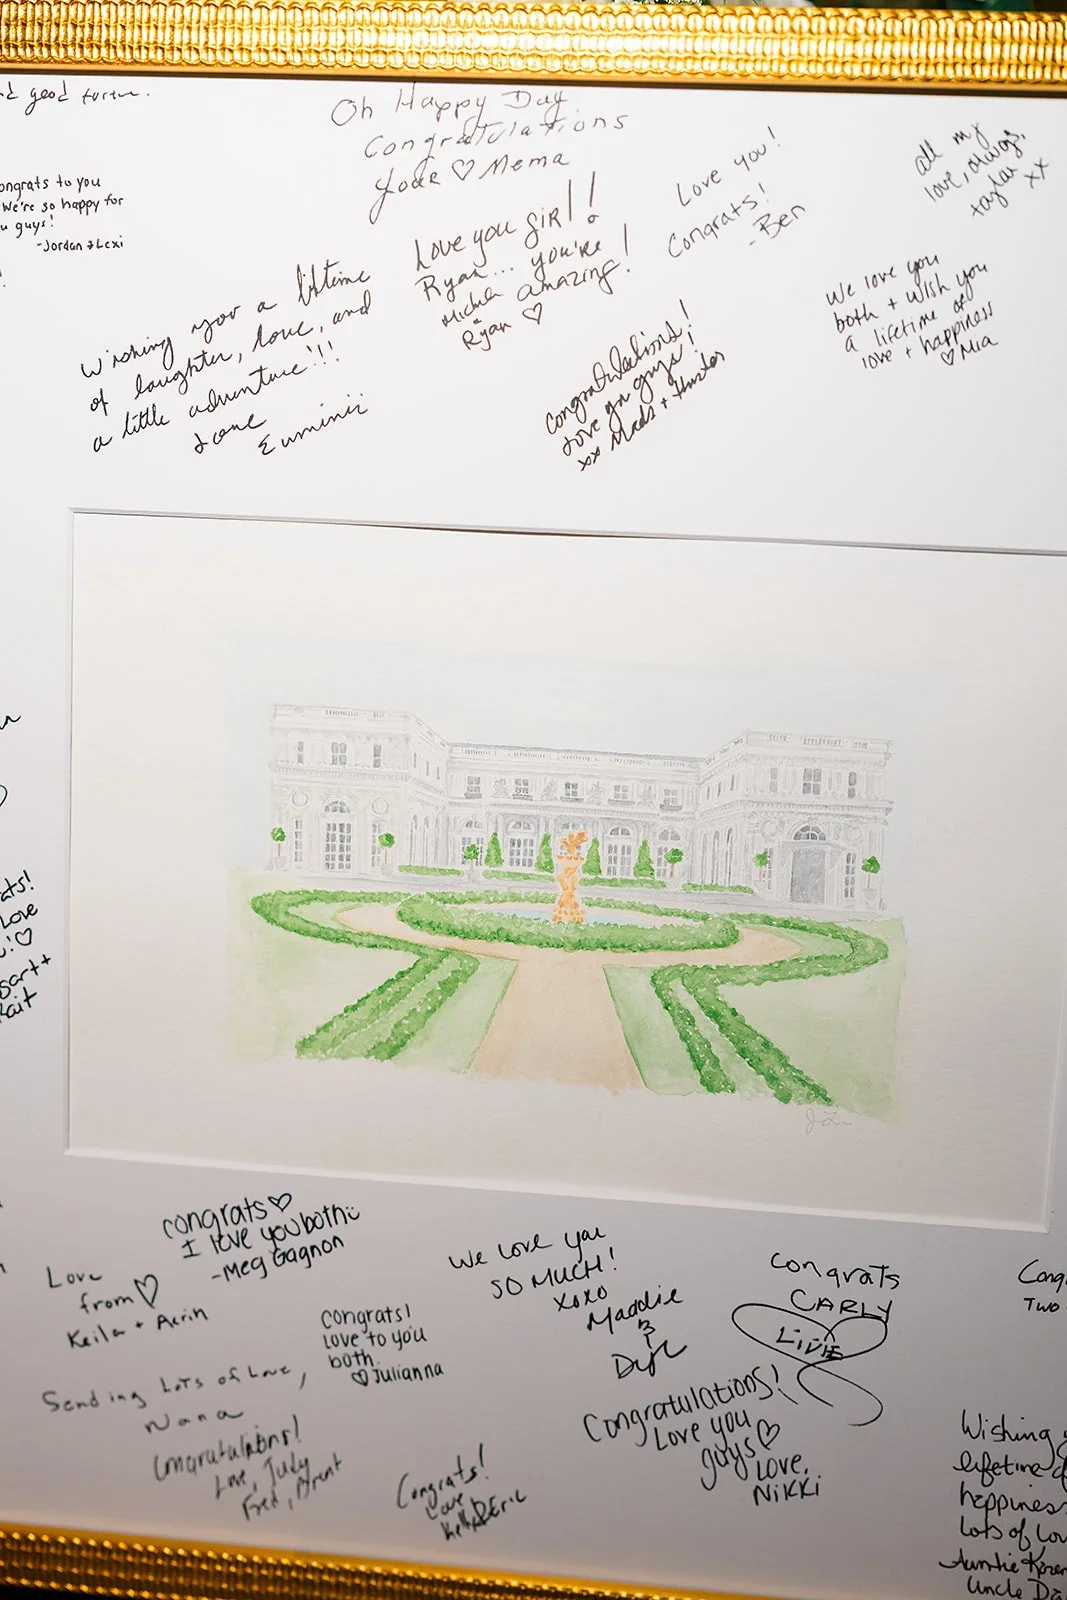 d good fortune.
Oh Happy Day
Congratulations
Love ♡ Mema
ongrats to you
We're so happy for
u guys!
-Jordan & Lexi
Love you girl!!
Ryan... you're
amazing!
Ryan ♡
Love you!
Congrats!
- Ben
all my
love, always,
taylor
xx
wishing you a lifetime
of laughter, love, and
a little adventure!!!
Love
Congratulations!
Love you guys!
xx Mads + Hunter
We love you
both + wish you
a lifetime of
love + happiness
♡ Mia
ats!
Love
!♡
Kait
congrats ♡
I love you both
-Meg Gagnon
Love
from ♡
Keila + Aerin
Congrats!
Love to you
both.
♡ Julianna
Sending Lots of Love,
Nana
Congratulations!
Love, Judy
Fred, Brent
Congrats!
Love
Kelly & Eric
We love you
SO MUCH!
xoxo
Maddie
&
Congrats
CARLY
Congratulations!
Love you
guys ♡
Love,
Nikki
Cong
Two
Wishing
lifetime of
happiness
Lots of Lov
Auntie Karen
Uncle Da